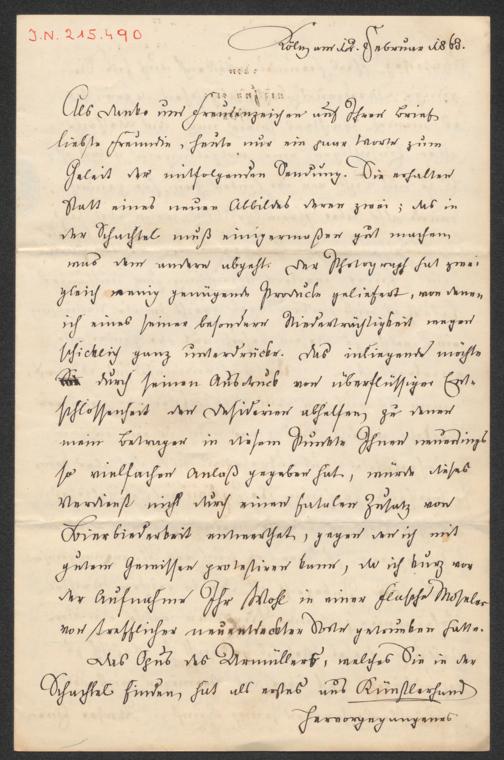 J.N. 215.490
Köln am 12. Februar 1863.
Als Danke und Freudenzeichen auf Ihren Brief,
liebste Freundin, heute nur ein paar Worte zum
Geleit der mitfolgenden Sendung. Sie erhalten
statt eines neuen Abbildes deren zwei; das in
der Schachtel muß einigermaßen gut machen
was dem andern abgeht. Der Photograph hat zwei
gleich wenig genügende Producte geliefert, von denen
ich eines seiner besondern Niederträchtigkeit wegen
schicklich ganz unterdrücke. Das inliegende möchte
durch seinen Ausdruck von überflüssiger Ent-
schlossenheit den Desiderien abhelfen, zu denen
mein Betragen in diesem Punkte Ihnen neuerdings
so vielfachen Anlaß gegeben hat, würde dieses
Verdienst nicht durch einen fatalen Zusatz von
Bierbiederkeit entwerthet, gegen den ich mit
gutem Gewissen protestiren kann, da ich kurz vor
der Aufnahme Ihr Wohl in einer Flasche Moseler
von trefflicher neuentdeckter Sorte getrunken hatte.
Das Opus des Dürmüllers, welches Sie in der
Schachtel finden, hat als erstes aus Künstlerhand
hervorgegangenes